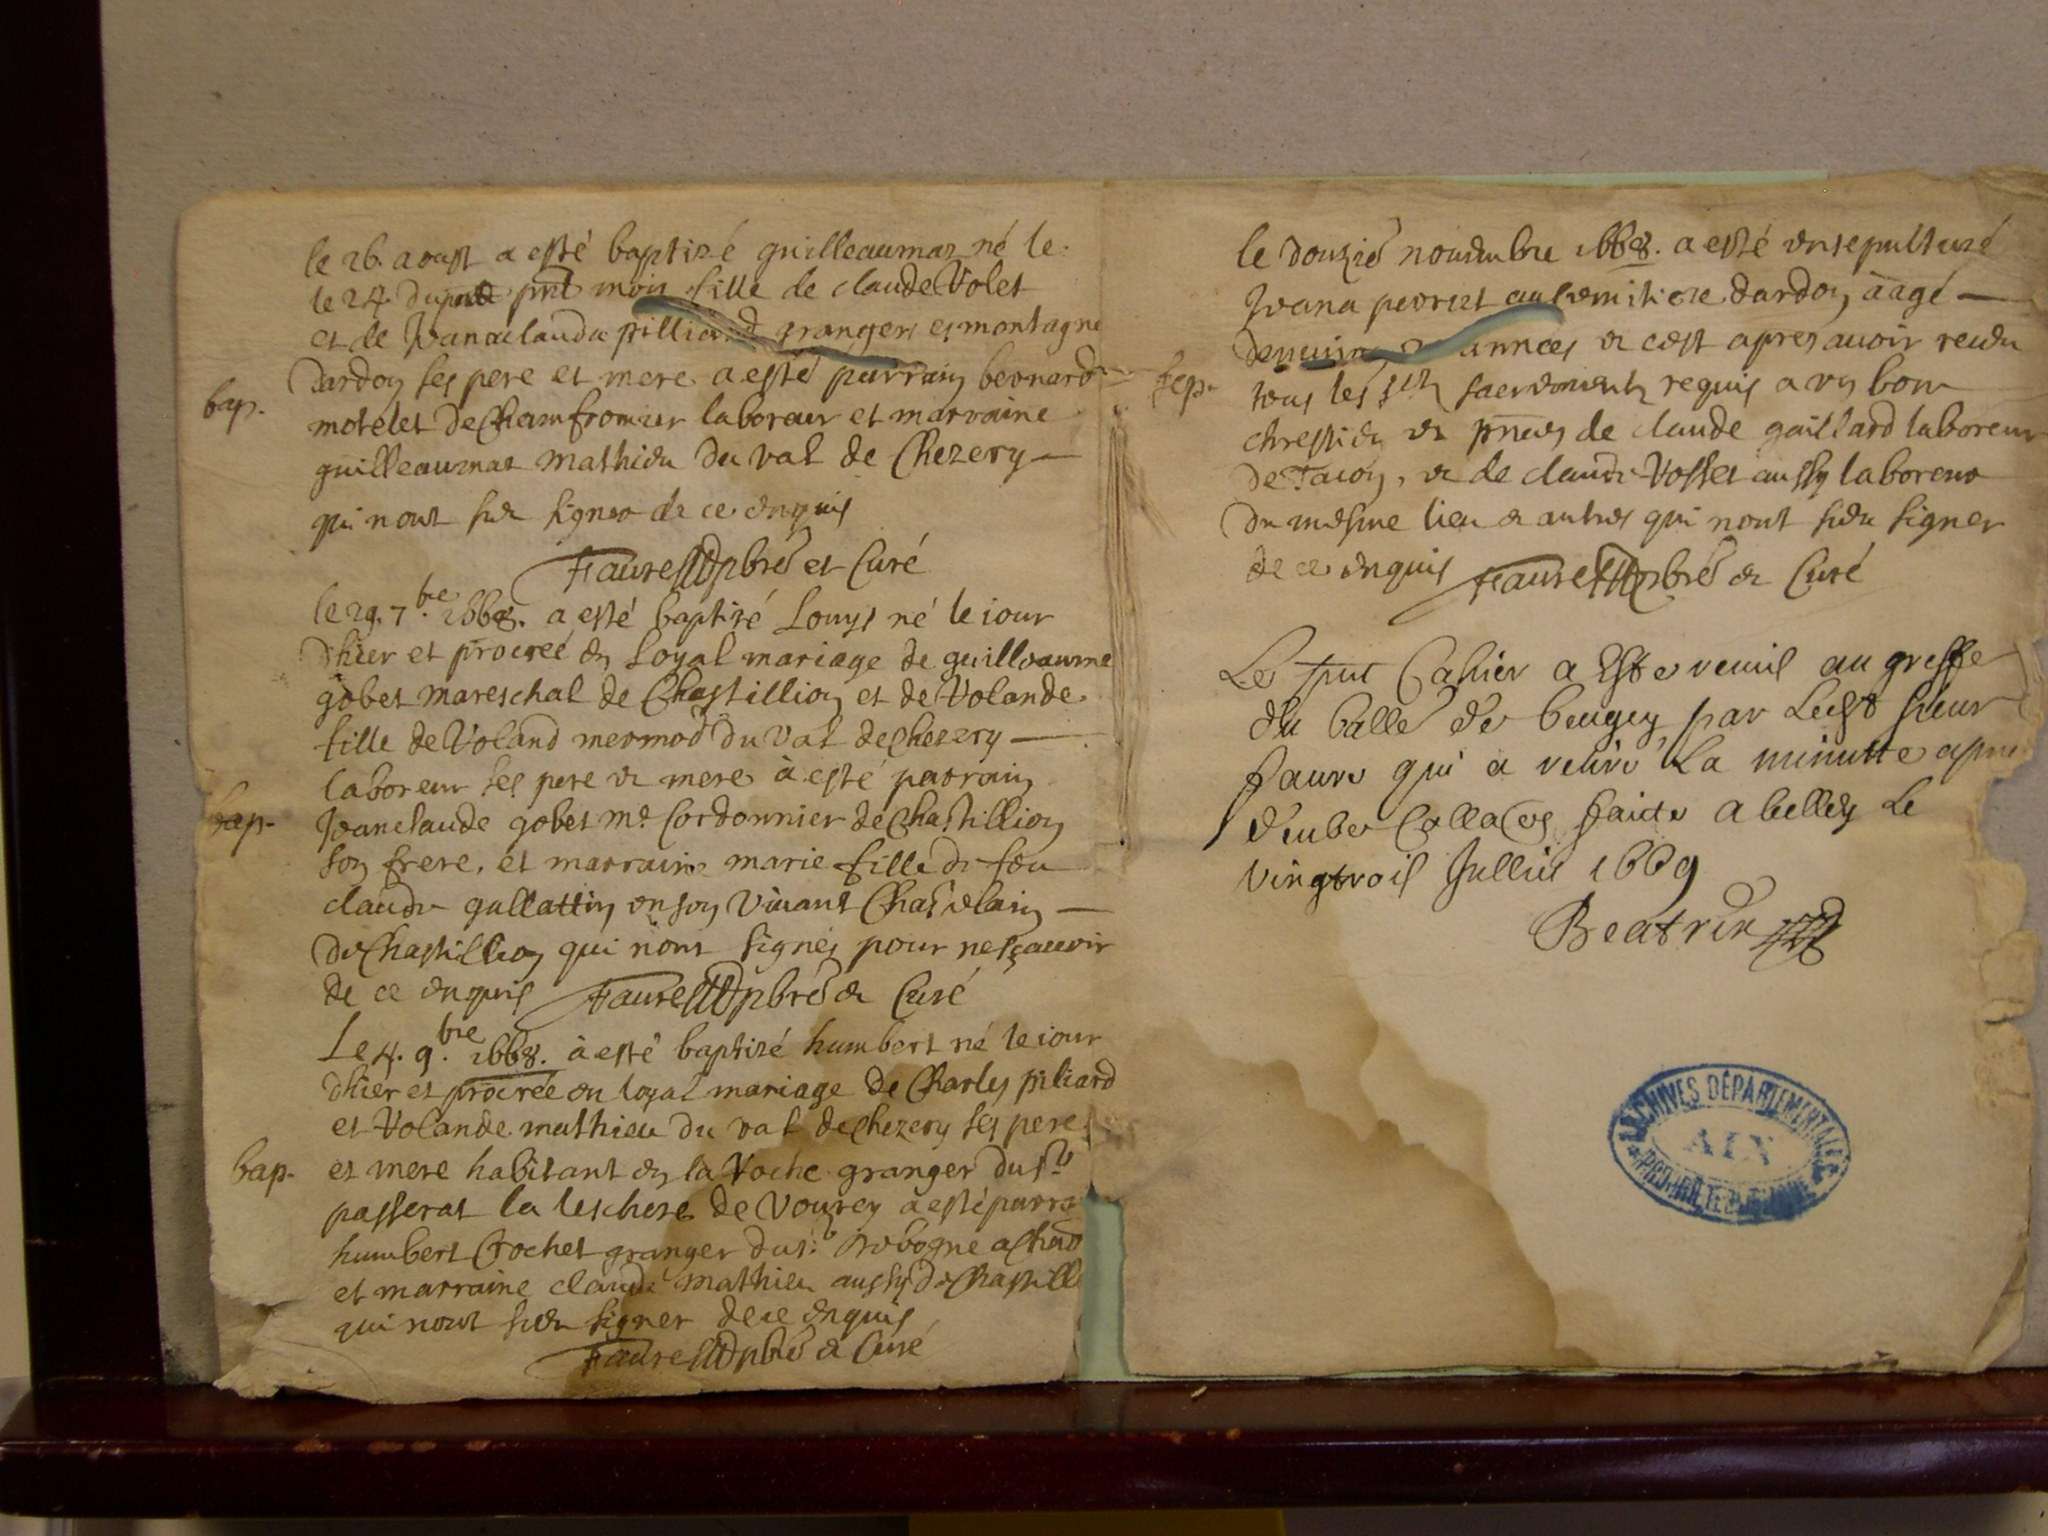 le 26. aoust a esté baptizé guilleaumaz né le
le 24. du pñt mois fille de claude Volet
et de Jeanclauda pilliard grangers es montagne
dardon ses pere et mere a esté parrain bernard
bap.
motelet de Chamfromier laboreur et marraine
guilleaumaz mathieu du val de Chezery
qui nont sceu signer de ce enquis
Faure pbre et Curé
le 29. 7.bre 1668. a esté baptizé Louys né le iour
dhier et procreé en loyal mariage de guilleaume
gobet mareschal de Chastillion et de Volande
fille de Voland mermod du val de chezery
laboreur ses pere et mere à esté parrain
bap.
Jeanclaude gobet me. Cordonnier de Chastillion
son frere, et marraine marie fille de feu
claude gallattin en son viuant Chastelain
de Chastillion qui nont signés pour ne sçauoir
de ce enquis Faure pbre et Curé
Le 4. 9.bre 1668. à esté baptizé humbert né le iour
dhier et procreé en loyal mariage de Charles piliard
et Volande mathieu du val de chezery ses pere
bap.
et mere habitant en la Voche granger du sr
passerat la leschere de Vouvrey a esté parra
humbert Crochet granger du sr
et marraine claude mathieu aussy de Chastill
qui nont sceu signer de ce enquis
Faure pbre et Curé
le douzie nouembre 1668. a esté ensepulturé
Jeana peoriet au semitiere dardon àagé
de annees et cest apres auoir rendu
sep.
tous les sts sacrements requis a vn bon
chrestien et pñces de claude gaillard laboreur
de Tacon, et de claude Vosset aussy laboreur
du mesme lieu et autres qui nont sceu signer
de ce enquis Faure pbre et Curé
Le pnt Cahier a Esté remis au greffe
du balle de beugey par Ledt sieur
faure qui a retiré La minutte apres
deube Colla@on faicte a belley Le
vingtrois Jullie 1669
Beatrix
ARCHIVES DÉPARTEMENTALES
AIN